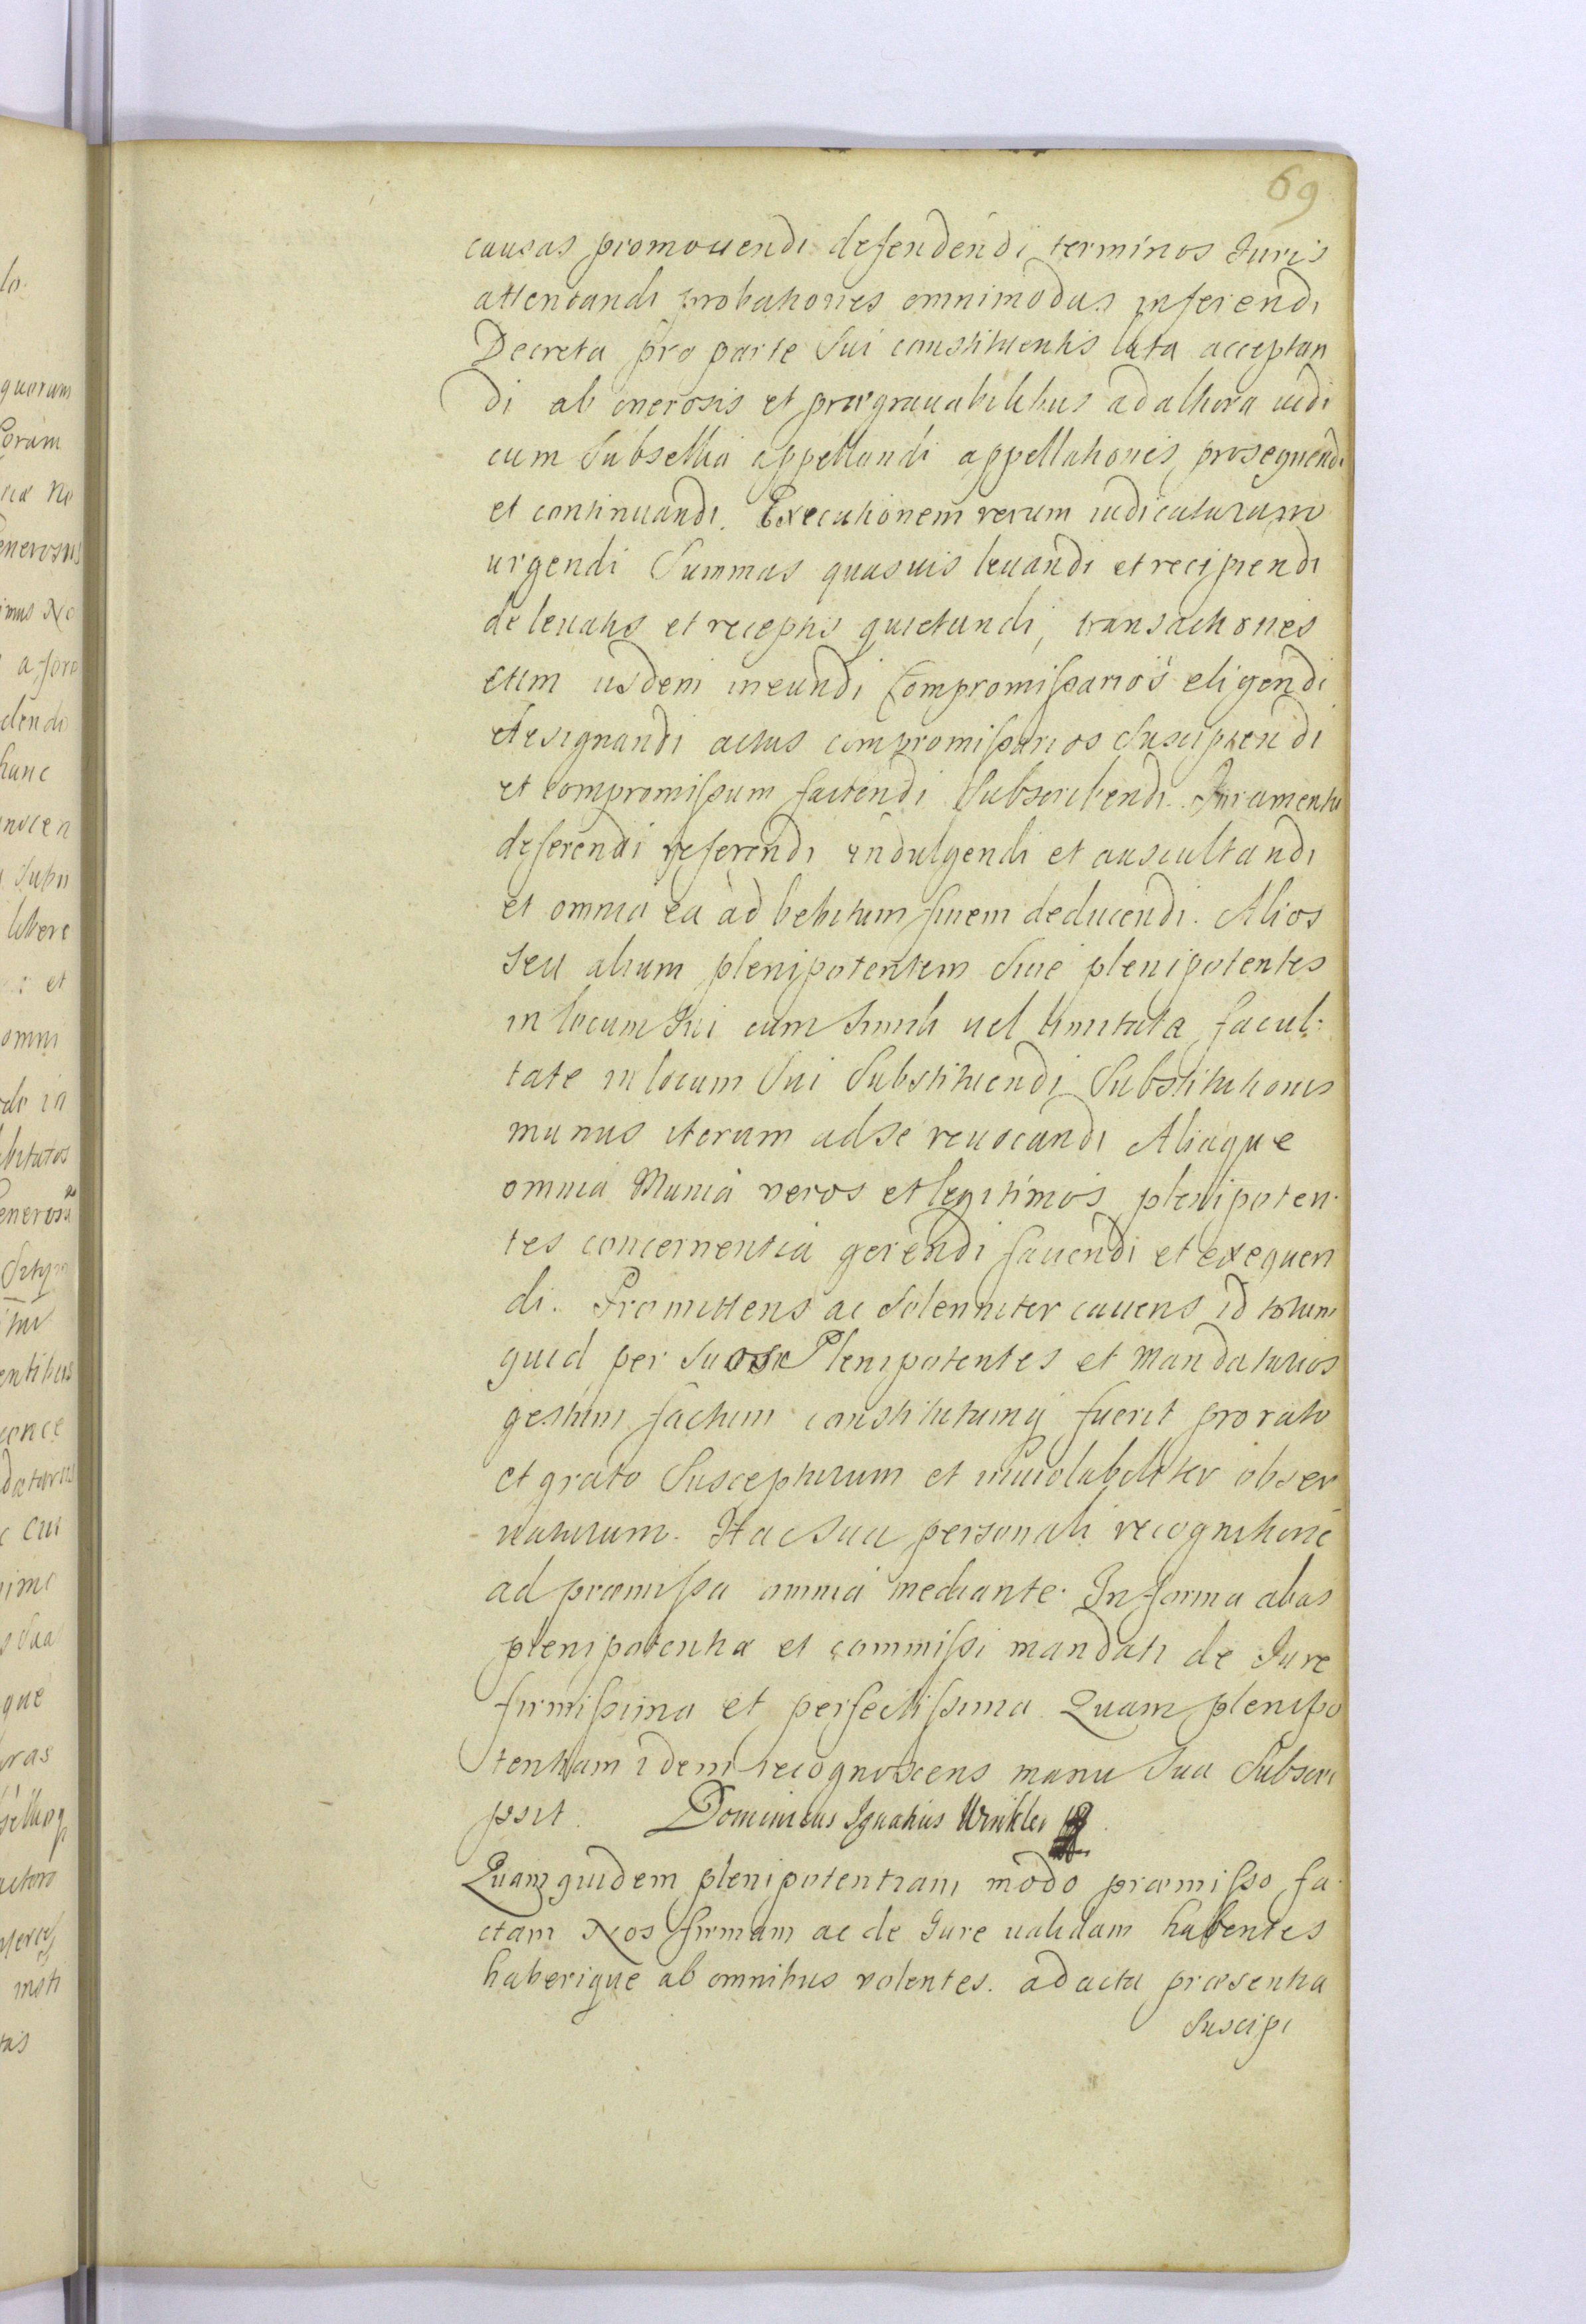 69
causas promouendi defendendi terminos Juris
attentandi probationes omnimodas inferendi
Decreta pro parte Sui constituentis lata acceptan
di ab onerosis et prægrauabilibus ad altiora iudi
cum Subsellia appellandi appellationes prosequendi
et continuandi. Executionem rerum iudicatarum
urgendi Summas quasuis leuandi et recipiendi
de leuatis et receptis quietandi, transactiones
cum iisdem ineundi Compromissarios eligendi
designandi actus compromissarios Suscipiendi
et compromissum faciendi Subscribendi. Juramenta
deferendi referendi indulgendi et auscultandi
et omnia ea ad bebitum finem deducendi. Alios
seu alium plenipotentem Siue plenipotentes
in locum Sui cum Simili uel limitata facul:
tate in locum Sui Substituendi Substitutionis
munus iterum ad se reuocandi Aliaque
omnia Munia veros et legitimos plenipoten:
tes concernentia gerendi fauendi et exequen
di. Promittens ac Solenniter cauens id totum
quid per Suos Plenipotentes et Mandatarios
gestum factum constitutumq fuerit pro rato
et grato Suscepturum et inuiolabiliter obser
uaturum. Hac Sua personali recognitione
ad præmissa omnia mediante. In forma abas
plenipotentiæ et commissi mandati de Jure
firmissima et perfectissima. Quam plenipo
tentiam idem recognoscens manu Sua Subscri
psit. Dominicus Ignatius Winkler
Quam quidem plenipotentiam modo præmisso fa
ctam Nos firmam ac de Jure ualidam habentes
haberique ab omnibus volentes. ad acta præsentia
Suscipi
lo.
quorum
Coram
enerosus
imus No
a fore
dendi
hanc
noscen
libere
et
omni
entibus
conce
cui
sua
que